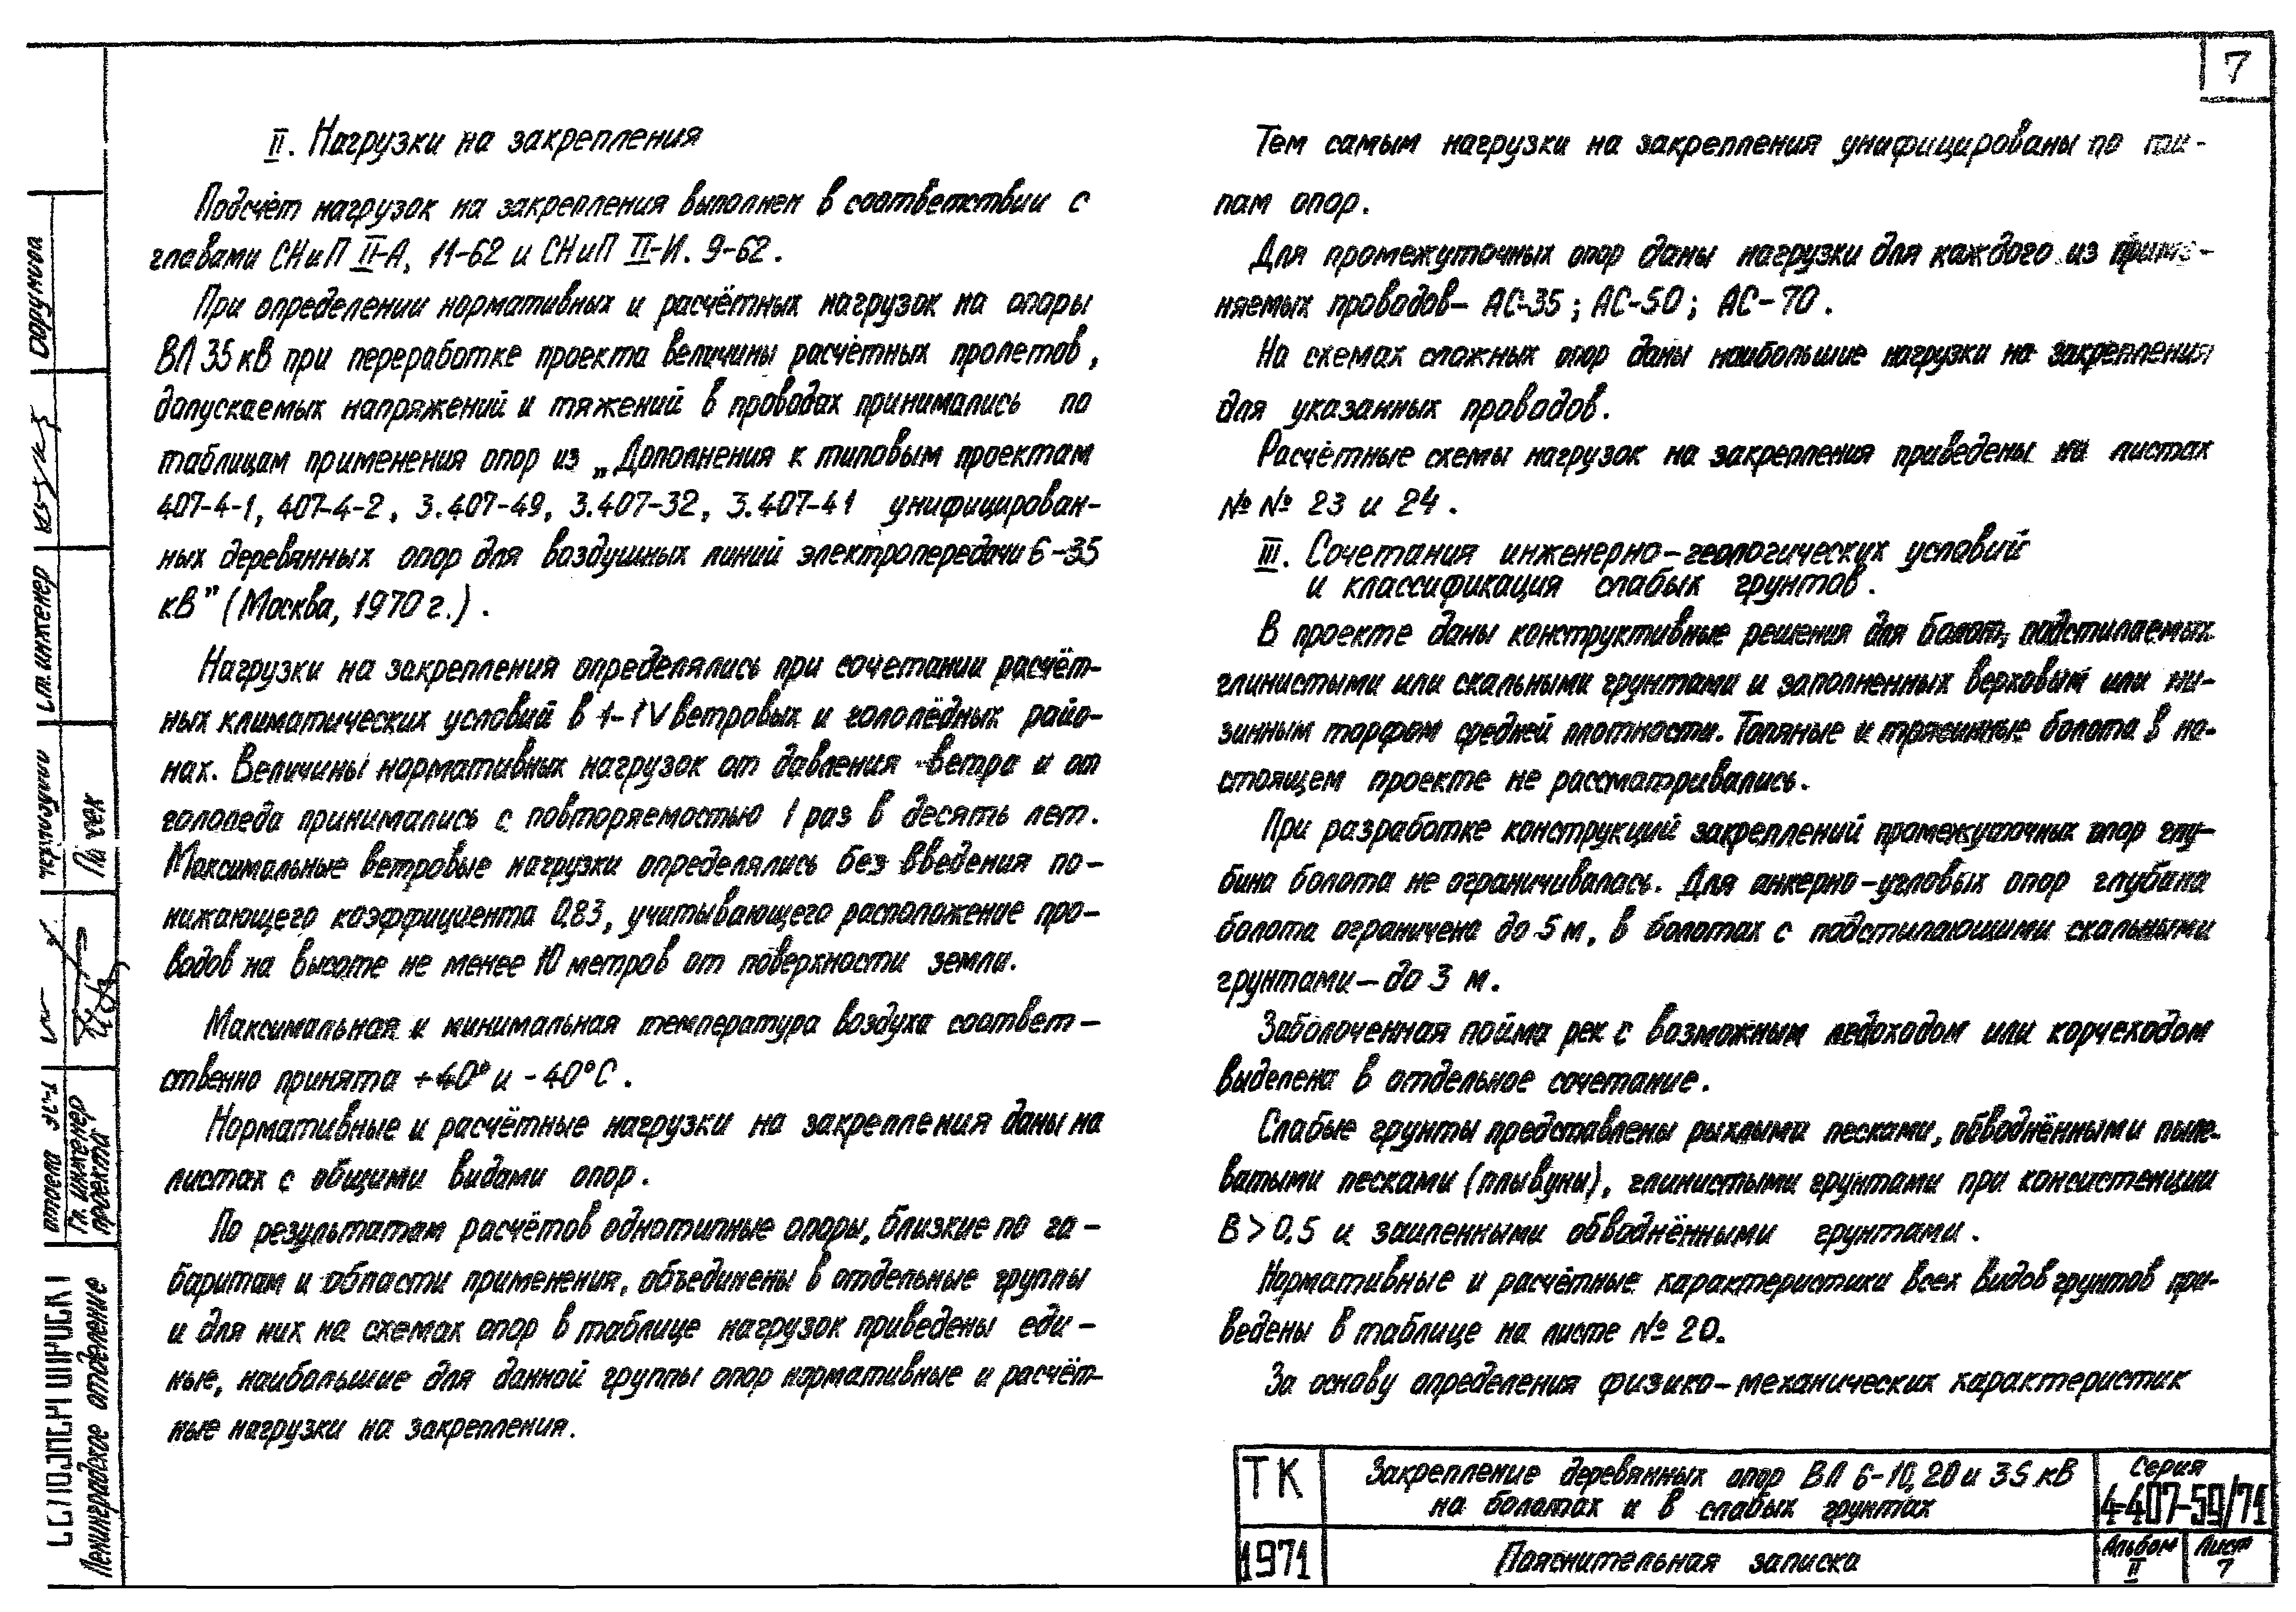 7
II. Нагрузки на закрепления
Подсчёт нагрузок на закрепления выполнен в соответствии с
главами СНиП II-А, 11-62 и СНиП II-И. 9-62.
При определении нормативных и расчётных нагрузок на опоры
ВЛ 35 кВ при переработке проекта величины расчётных пролетов,
допускаемых напряжений и тяжений в проводах принимались по
таблицам применения опор из „Дополнения к типовым проектам
407-4-1, 407-4-2, 3.407-49, 3.407-32, 3.407-41 унифицирован-
ных деревянных опор для воздушных линий электропередачи 6-35
кВ" (Москва, 1970 г.).
Нагрузки на закрепления определялись при сочетании расчёт-
ных климатических условий в I-IV ветровых и гололёдных райо-
нах. Величины нормативных нагрузок от давления ветра и от
гололеда принимались с повторяемостью 1 раз в десять лет.
Максимальные ветровые нагрузки определялись без введения по-
нижающего коэффициента 0,83, учитывающего расположение про-
водов на высоте не менее 10 метров от поверхности земли.
Максимальная и минимальная температура воздуха соответ-
ственно принята +40° и -40°С.
Нормативные и расчётные нагрузки на закрепления даны на
листах с общими видами опор.
По результатам расчётов однотипные опоры, близкие по га-
баритам и области применения, объединены в отдельные группы
и для них на схемах опор в таблице нагрузок приведены еди-
ные, наибольшие для данной группы опор нормативные и расчёт-
ные нагрузки на закрепления.
Тем самым нагрузки на закрепления унифицированы по ти-
пам опор.
Для промежуточных опор даны нагрузки для каждого из приме-
няемых проводов- АС-35; АС-50; АС-70.
На схемах сложных опор даны наибольшие нагрузки на закрепления
для указанных проводов.
Расчётные схемы нагрузок на закрепления приведены на листах
№ № 23 и 24.
III. Сочетания инженерно-геологических условий
и классификация слабых грунтов.
В проекте даны конструктивные решения для болот, подстилаемых
глинистыми или скальными грунтами и заполненных верховым или ни-
зинным торфом средней плотности. Топяные и трясинные болота в на-
стоящем проекте не рассматривались.
При разработке конструкций закреплений промежуточных опор глу-
бина болота не ограничивалась. Для анкерно-угловых опор глубина
болота ограничена до 5 м, в болотах с подстилающими скальными
грунтами - до 3 м.
Заболоченная пойма рек с возможным ледоходом или корчеходом
выделена в отдельное сочетание.
Слабые грунты представлены рыхлыми песками, обводнёнными пыле-
ватыми песками (плывуны), глинистыми грунтами при консистенции
В > 0,5 и заиленными обводнёнными грунтами.
Нормативные и расчётные характеристики всех видов грунтов при-
ведены в таблице на листе № 20.
За основу определения физико-механических характеристик
ТК
1971
Закрепление деревянных опор ВЛ 6-10, 20 и 35 кВ
на болотах и в слабых грунтах
Пояснительная записка
Серия
4-407-59/71
Альбом
II
Лист
7
Ленинградское отделение
отдела ЭС-1
Гл. инженер
проекта
Ст. инженер